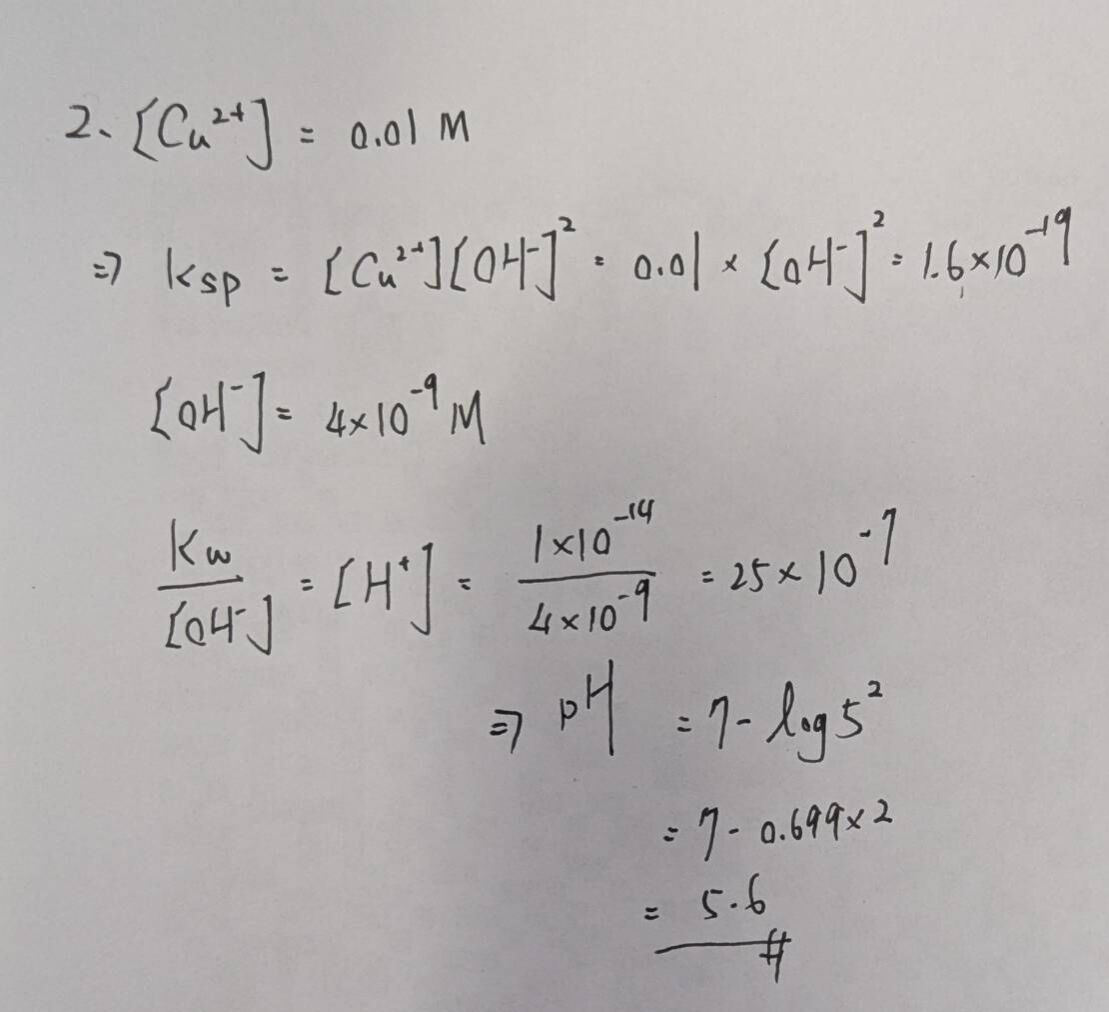 2、[Cu²⁺] = 0.01 M
⇒ Ksp = [Cu²⁺][OH⁻]² = 0.01 × [OH⁻]² = 1.6×10⁻¹⁹
[OH⁻] = 4×10⁻⁹ M
Kw/[OH⁻] = [H⁺] = (1×10⁻¹⁴)/(4×10⁻⁹) = 25×10⁻⁷
⇒ pH = 7 - log 5²
= 7 - 0.699×2
= 5.6 #